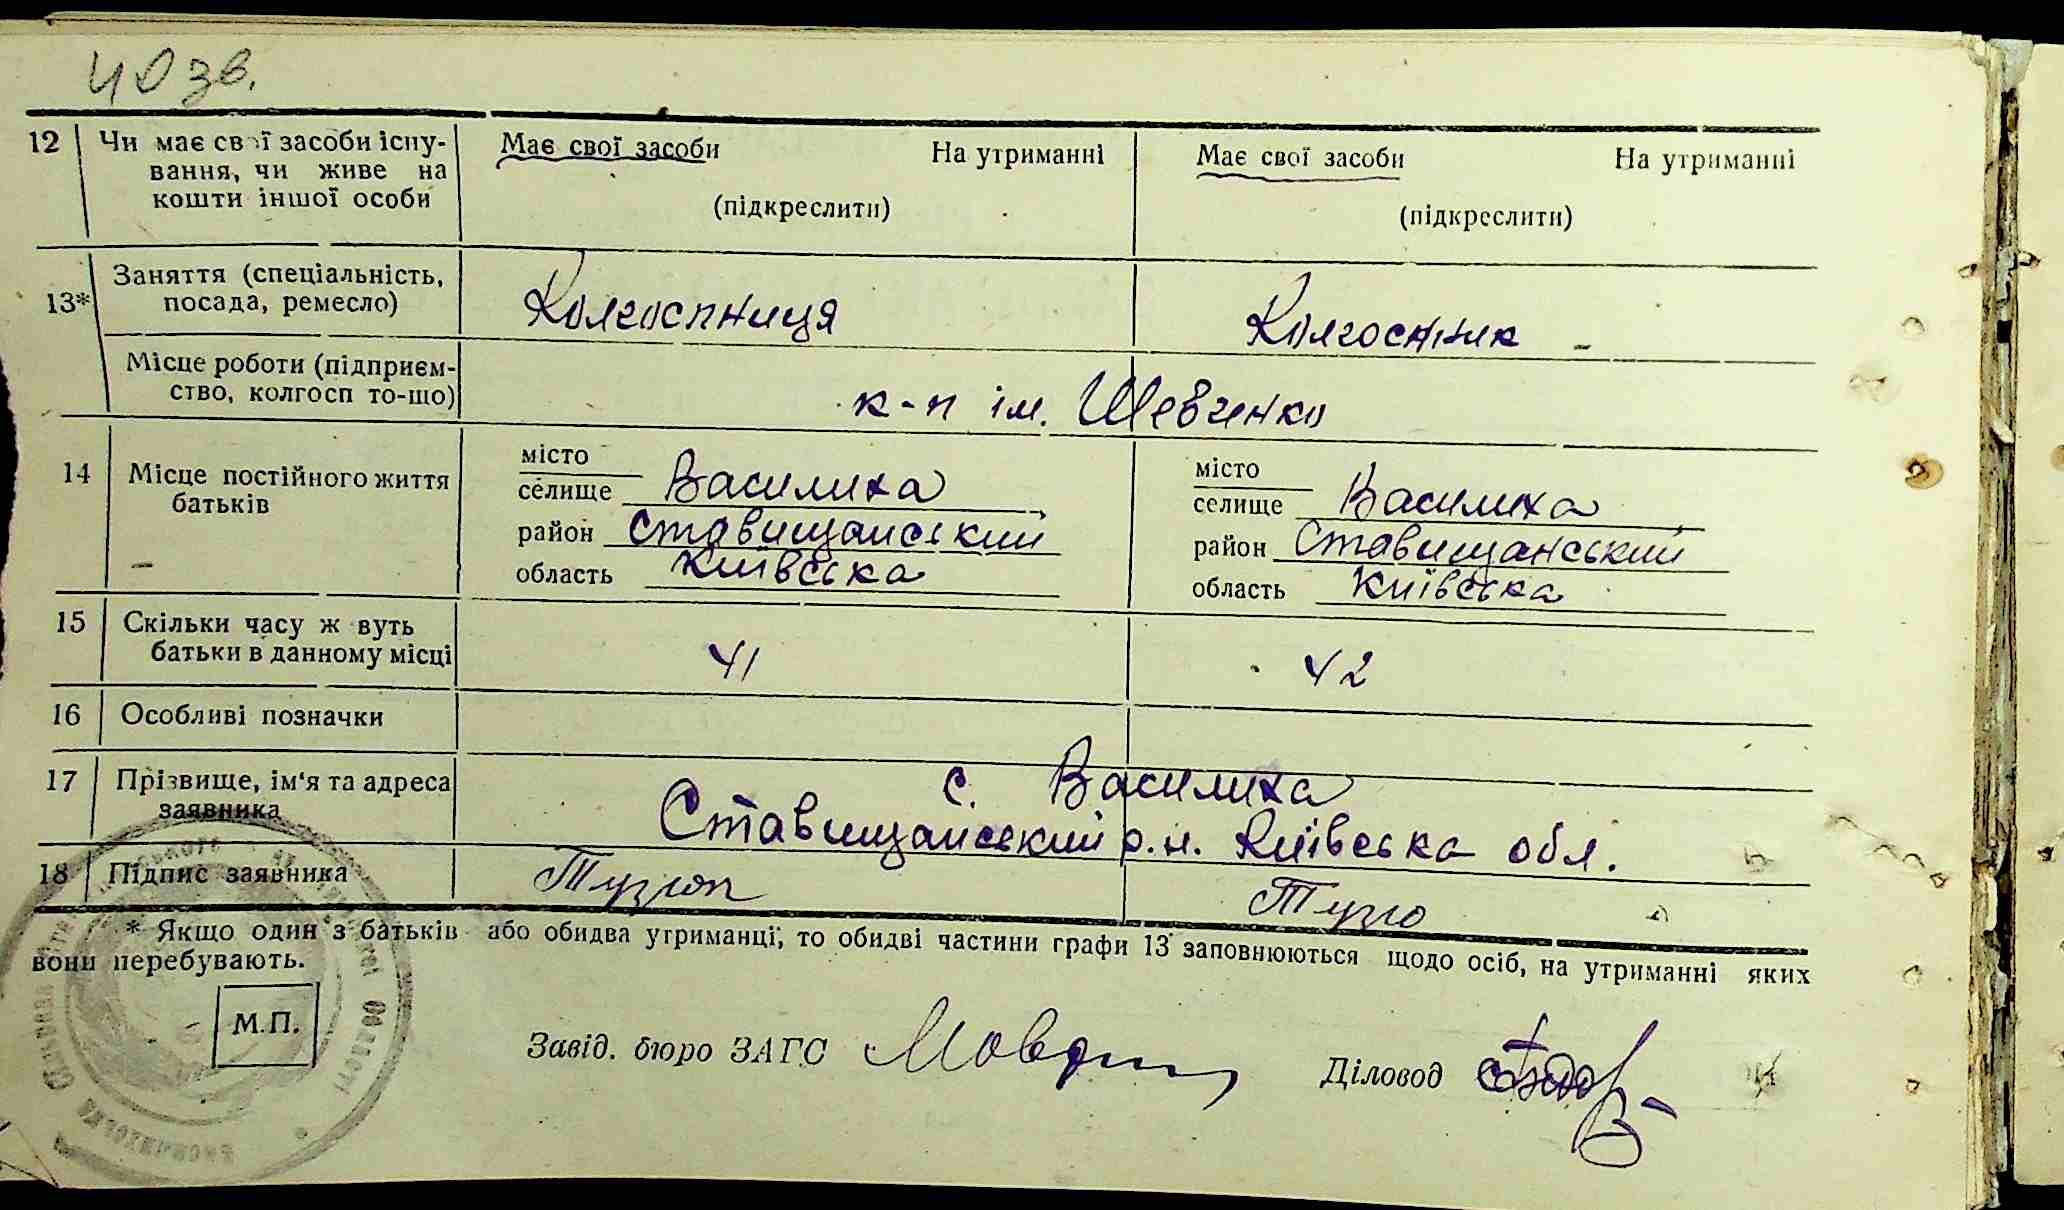 40 зв.
12 Чи має свої засоби існу- Має свої засоби На утриманні Має свої засоби На утриманні
вання, чи живе на
кошти іншої особи (підкреслити) (підкреслити)
13* Заняття (спеціальність,
посада, ремесло) Колгоспниця Колгоспник
Місце роботи (підприєм-
ство, колгосп то-що) к-п ім. Шевченко
14 Місце постійного життя
батьків
місто місто
селище Василиха селище Василиха
район Ставищанський район Ставищанський
область Київська область Київська
15 Скільки часу ж вуть
батьки в данному місці 41 42
16 Особливі позначки
17 Прізвище, ім'я та адреса с. Василиха
заявника Ставищанський р.н. Київська обл.
18 Підпис заявника
* Якщо один з батьків або обидва утриманці, то обидві частини графи 13 заповнюються щодо осіб, на утриманні яких
вони перебувають.
М.П.
Завід. бюро ЗАГС Діловод
Області